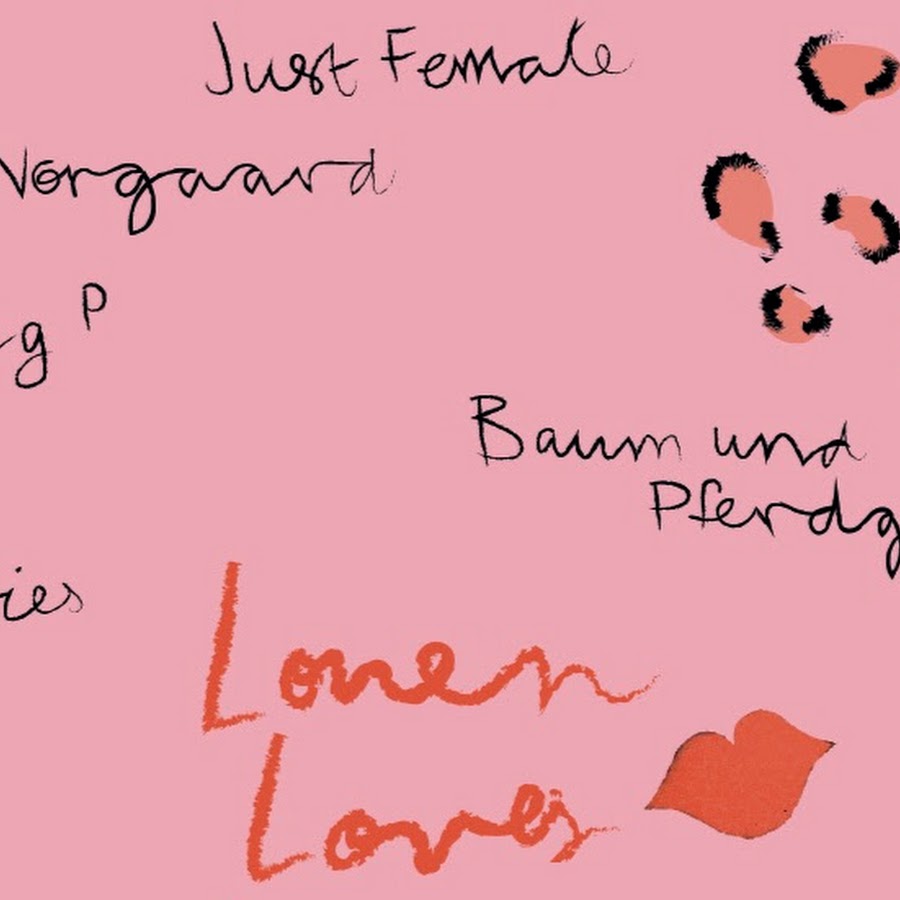 Just Female
Nørgaard
g P
Baum und
Pferdg
ies
Loren
Loves